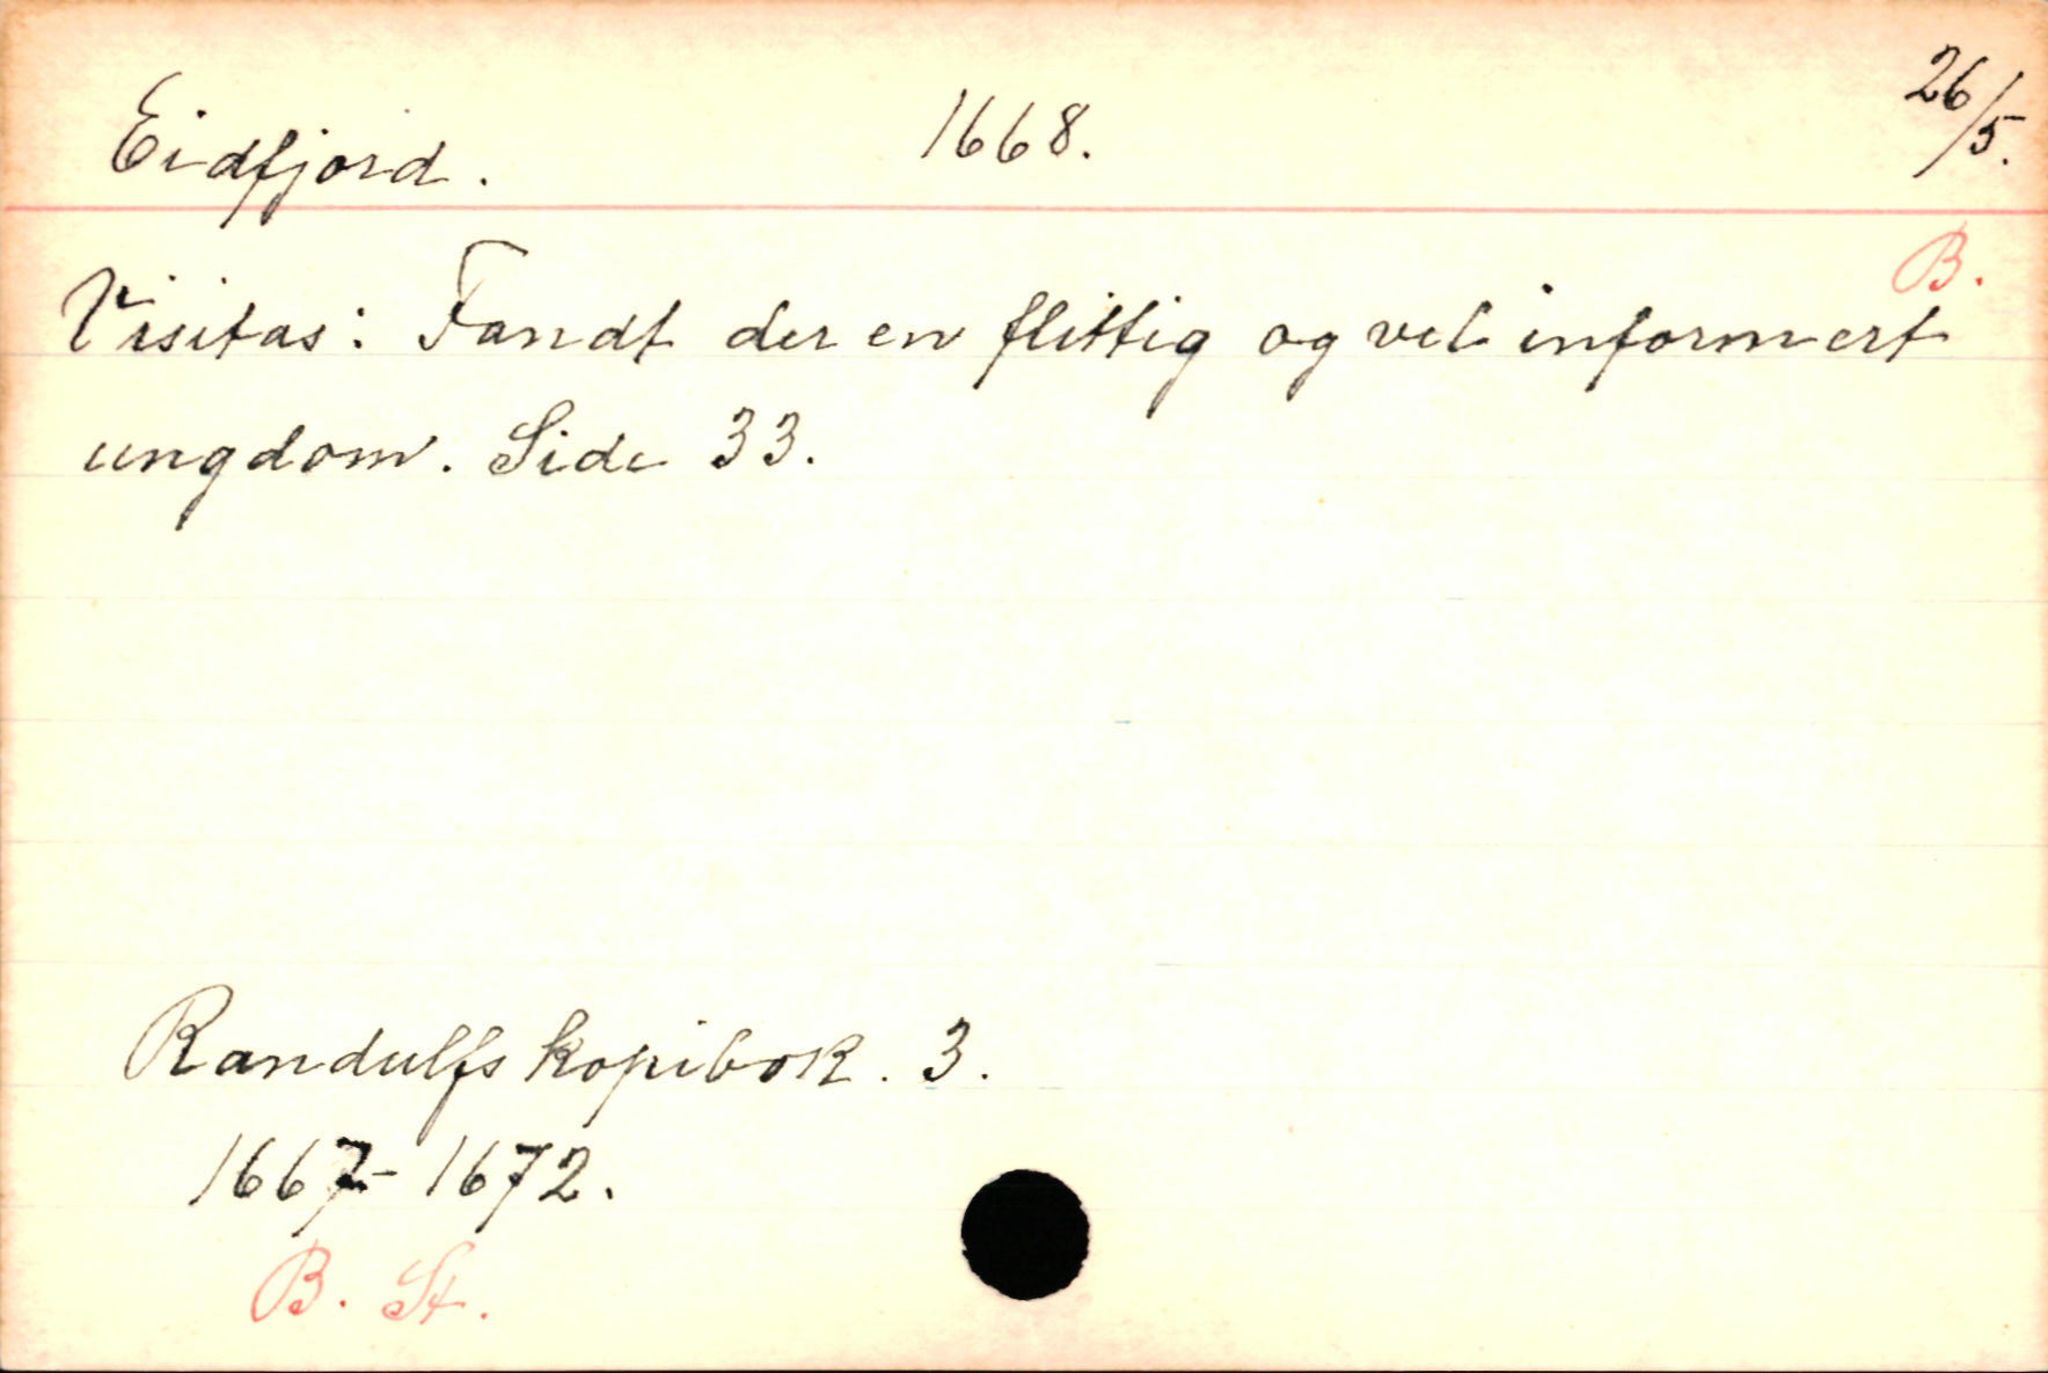 Eidfjord. 1668. 26/5.
B.
Visitas: Fandt der en flittig og vel informert
ungdom. Side 33.
Randulfs kopibok. 3.
1667-1672.
B. St.